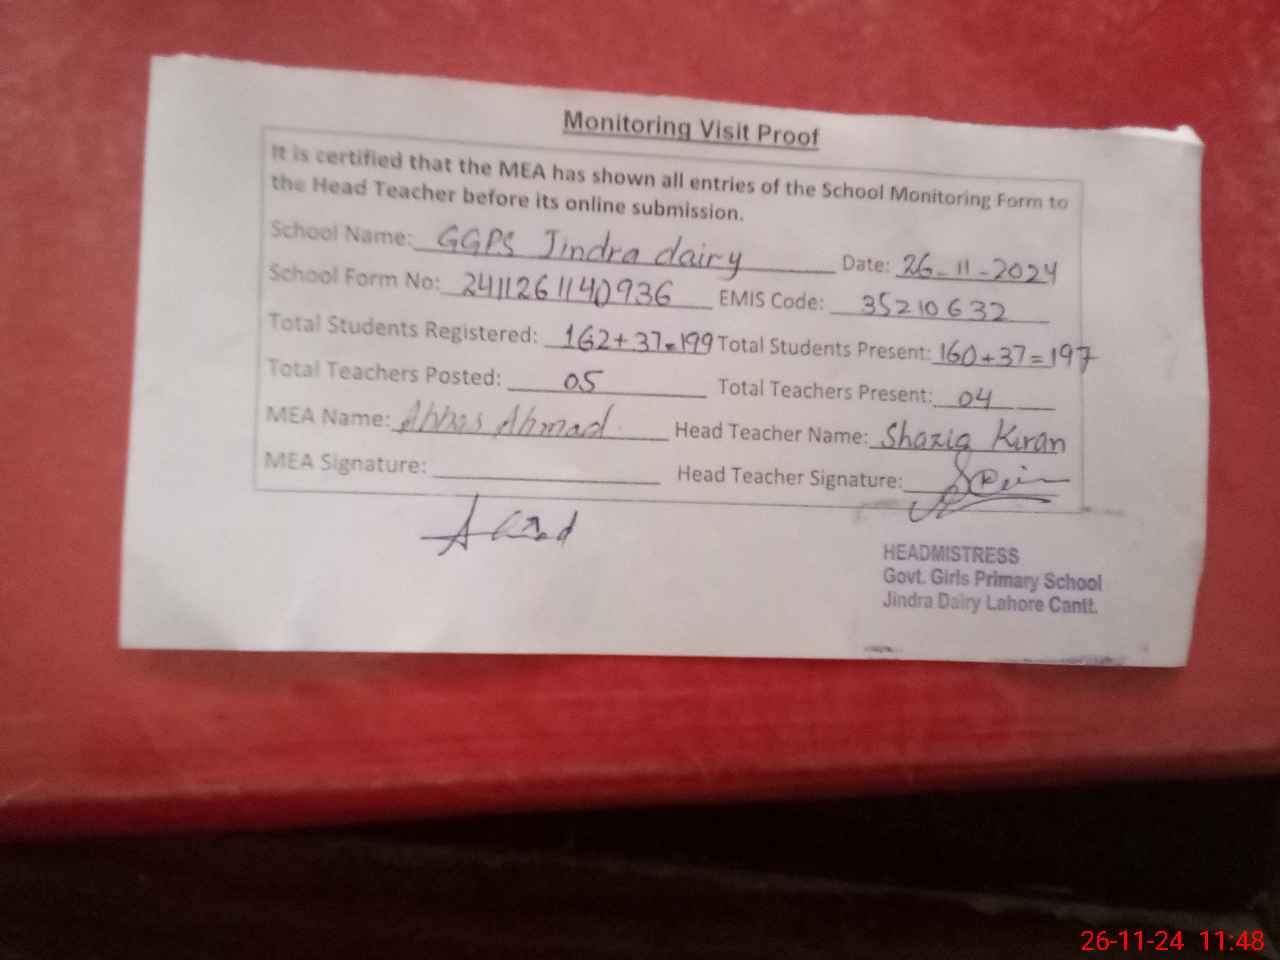 Monitoring Visit Proof
It is certified that the MEA has shown all entries of the School Monitoring Form to
the Head Teacher before its online submission.
School Name: GGPS Jindra dairy Date: 26-11-2024
School Form No: 2411261140936 EMIS Code: 35210632
Total Students Registered: 162+37=199 Total Students Present: 160+37=197
Total Teachers Posted: 05 Total Teachers Present: 04
MEA Name: Abbas Ahmad Head Teacher Name: Shazia Kiran
MEA Signature: Head Teacher Signature:
HEADMISTRESS
Govt. Girls Primary School
Jindra Dairy Lahore Cantt.
26-11-24 11:48